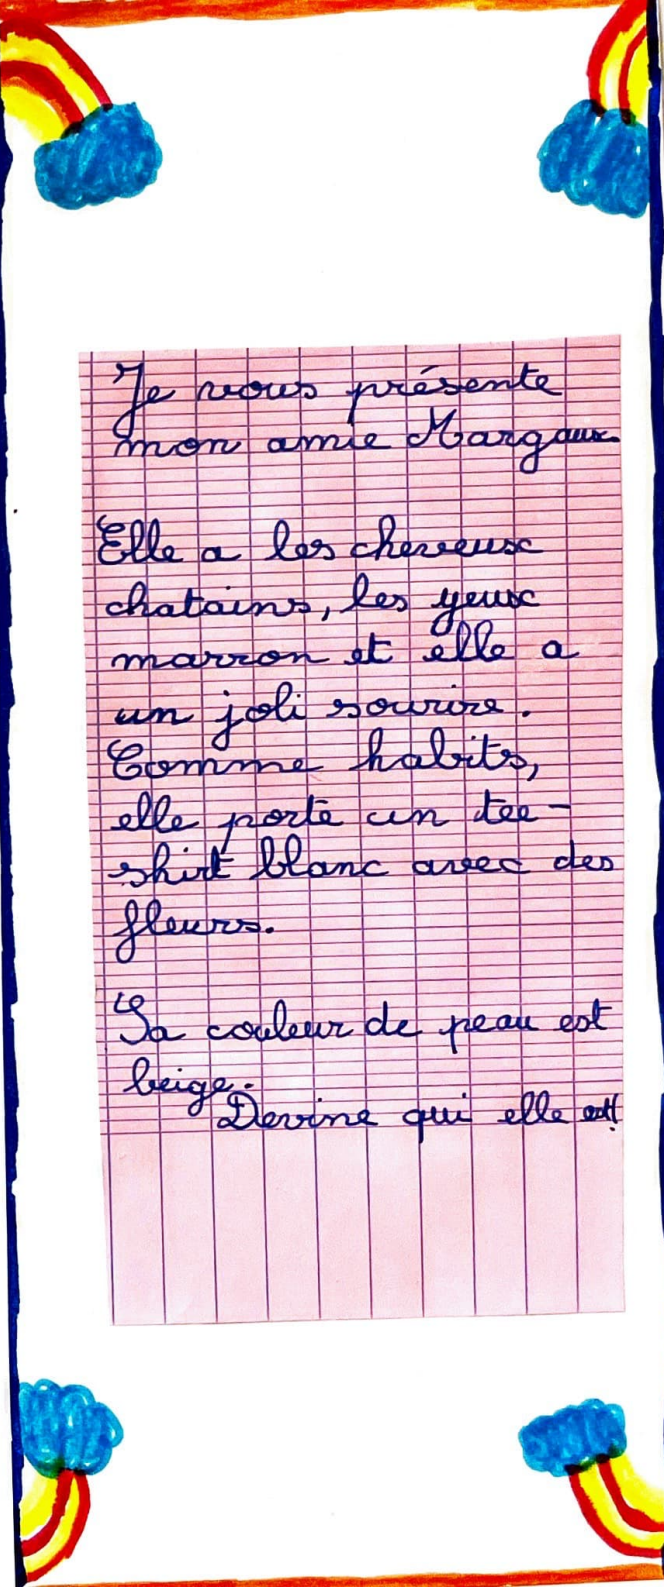 Je vous présente
mon amie Margaux
Elle a les cheveux
chatains, les yeux
marron et elle a
un joli sourire.
Comme habits,
elle porte un tee-
shirt blanc avec des
fleurs.
Sa couleur de peau est
beige.
Devine qui elle est!